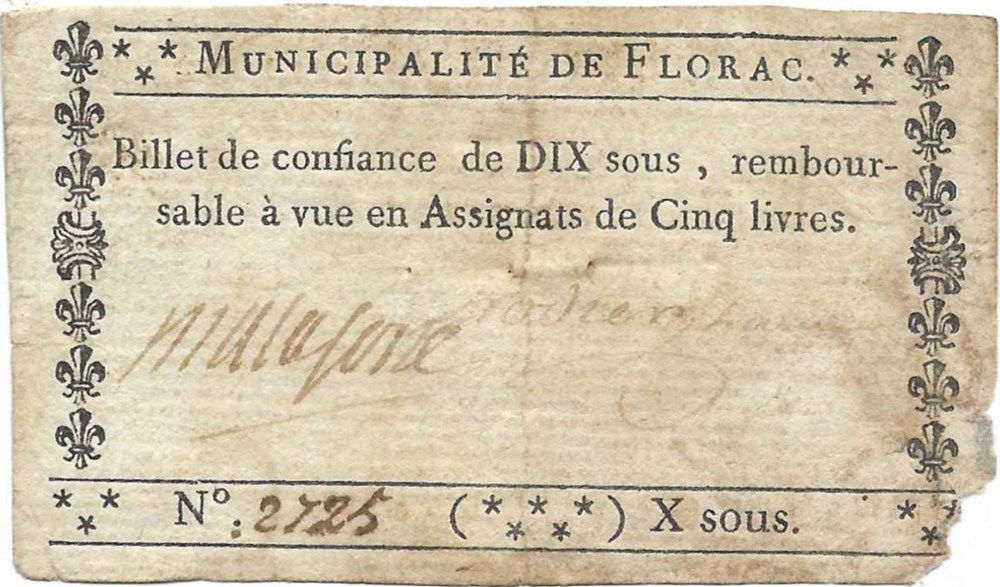 * * * MUNICIPALITÉ DE FLORAC. * * *
Billet de confiance de DIX sous, rembour-
sable à vue en Assignats de Cinq livres.
* * * Nº: 2725 (* * * * *) X sous. * *